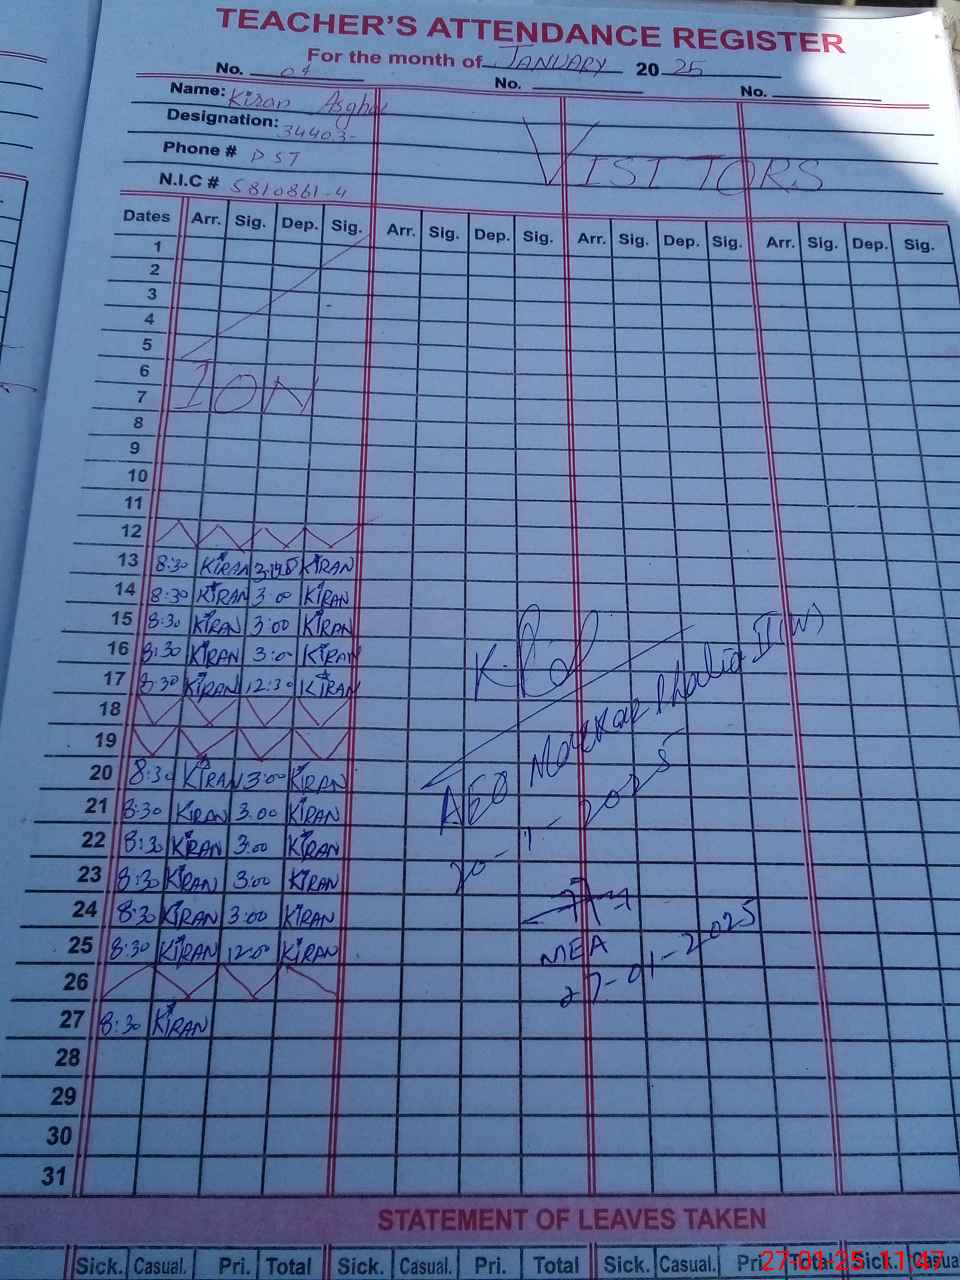 TEACHER'S ATTENDANCE REGISTER
For the month of JANUARY 2025
No. 04 No. No.
Name: Kiran Asghar
Designation: 34403-
Phone # PST
N.I.C # 5810861-4
VISITTORS
Dates Arr. Sig. Dep. Sig. Arr. Sig. Dep. Sig. Arr. Sig. Dep. Sig. Arr. Sig. Dep. Sig.
1
2
3
4
5
6
7 ION
8
9
10
11
12
13 8:30 KIRAN KIRAN
14 8:30 KIRAN 3:00 KIRAN
15 8:30 KIRAN 3:00 KIRAN
16 8:30 KIRAN 3:00 KIRAN
17 8:30 KIRAN 12:30 KIRAN
18
19
20 8:30 KIRAN 3:00 KIRAN
21 8:30 KIRAN 3:00 KIRAN
22 8:30 KIRAN 3:00 KIRAN
23 8:30 KIRAN 3:00 KIRAN
24 8:30 KIRAN 3:00 KIRAN
25 8:30 KIRAN 12:00 KIRAN
26
27 8:30 KIRAN
28
29
30
31
AEO Markaz Phalia II (W)
20-1-2025
MEA
27-01-2025
STATEMENT OF LEAVES TAKEN
Sick. Casual. Pri. Total Sick. Casual. Pri. Total Sick. Casual. Pri. Total Sick. Casual.
27-01-25 11:47